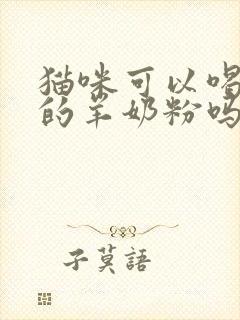 猫咪可以喝
的羊奶粉吗
子莫語